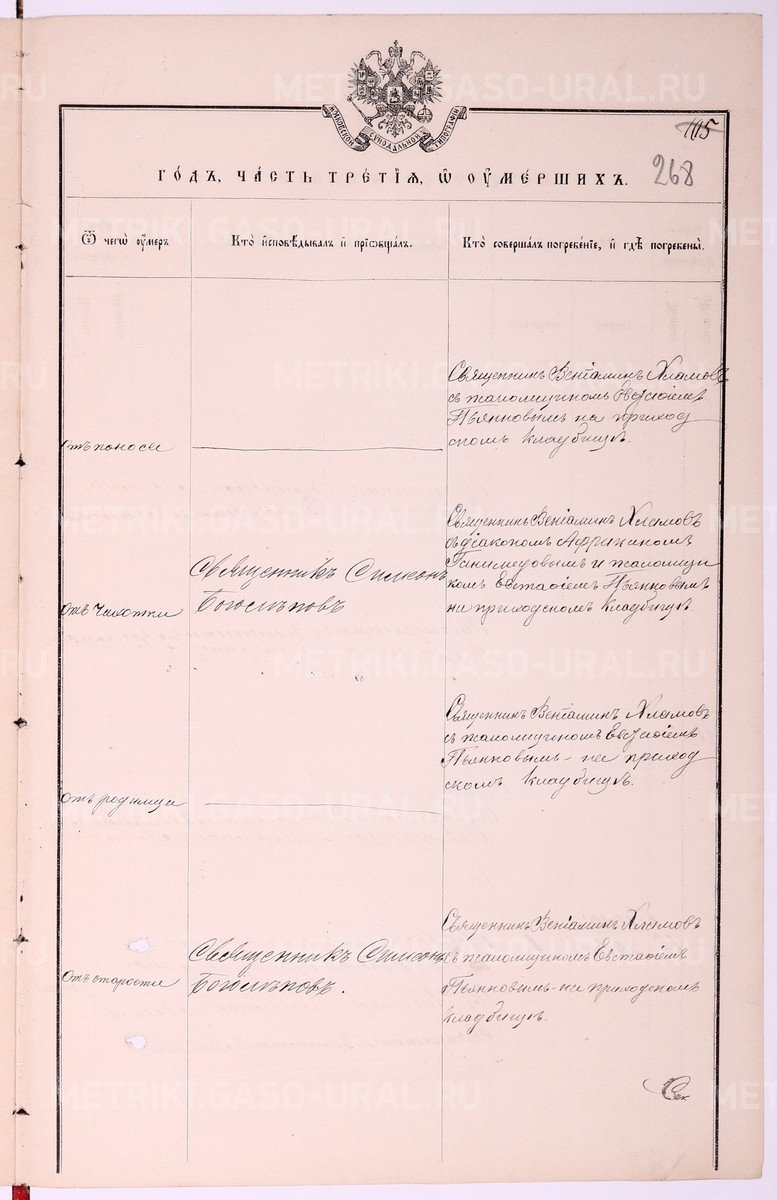 МОСКОВСКОЙ СѴНОДАЛЬНОЙ ТИПОГРАФІИ
115
268
ГО́ДЪ, ЧА́СТЬ ТРЕ́ТІѦ, Ѿ ОУ҆МЕ́РШИХЪ.
Ѿ чегѡ̀ оу҆́меръ
Кто̀ и҆сповѣ́дывалъ и҆ прїѡбща́лъ.
Кто̀ соверша́лъ погребе́нїе, и҆ гдѣ̀ погребены̀.
Отъ поноса
Священникъ Веніаминъ Хламовъ
съ псаломщикомъ Евстаѳіемъ
Пьянковымъ на приход
скомъ кладбищѣ.
Отъ чахотки
Священникъ Симеонъ
Богослѣповъ
Священникъ Веніаминъ Хламовъ
съ діакономъ Африканомъ
Ганимедовымъ и псаломщи
комъ Евстаѳіемъ Пьянковымъ
на приходскомъ кладбищѣ.
Отъ родимца
Священникъ Веніаминъ Хламовъ
съ псаломщикомъ Евстаѳіемъ
Пьянковымъ на приход
скомъ кладбищѣ.
Отъ старости
Священникъ Симеонъ
Богослѣповъ.
Священникъ Веніаминъ Хламовъ
съ псаломщикомъ Евстаѳіемъ
Пьянковымъ на приходскомъ
кладбищѣ.
Сек
METRIKI.GASO-URAL.RU